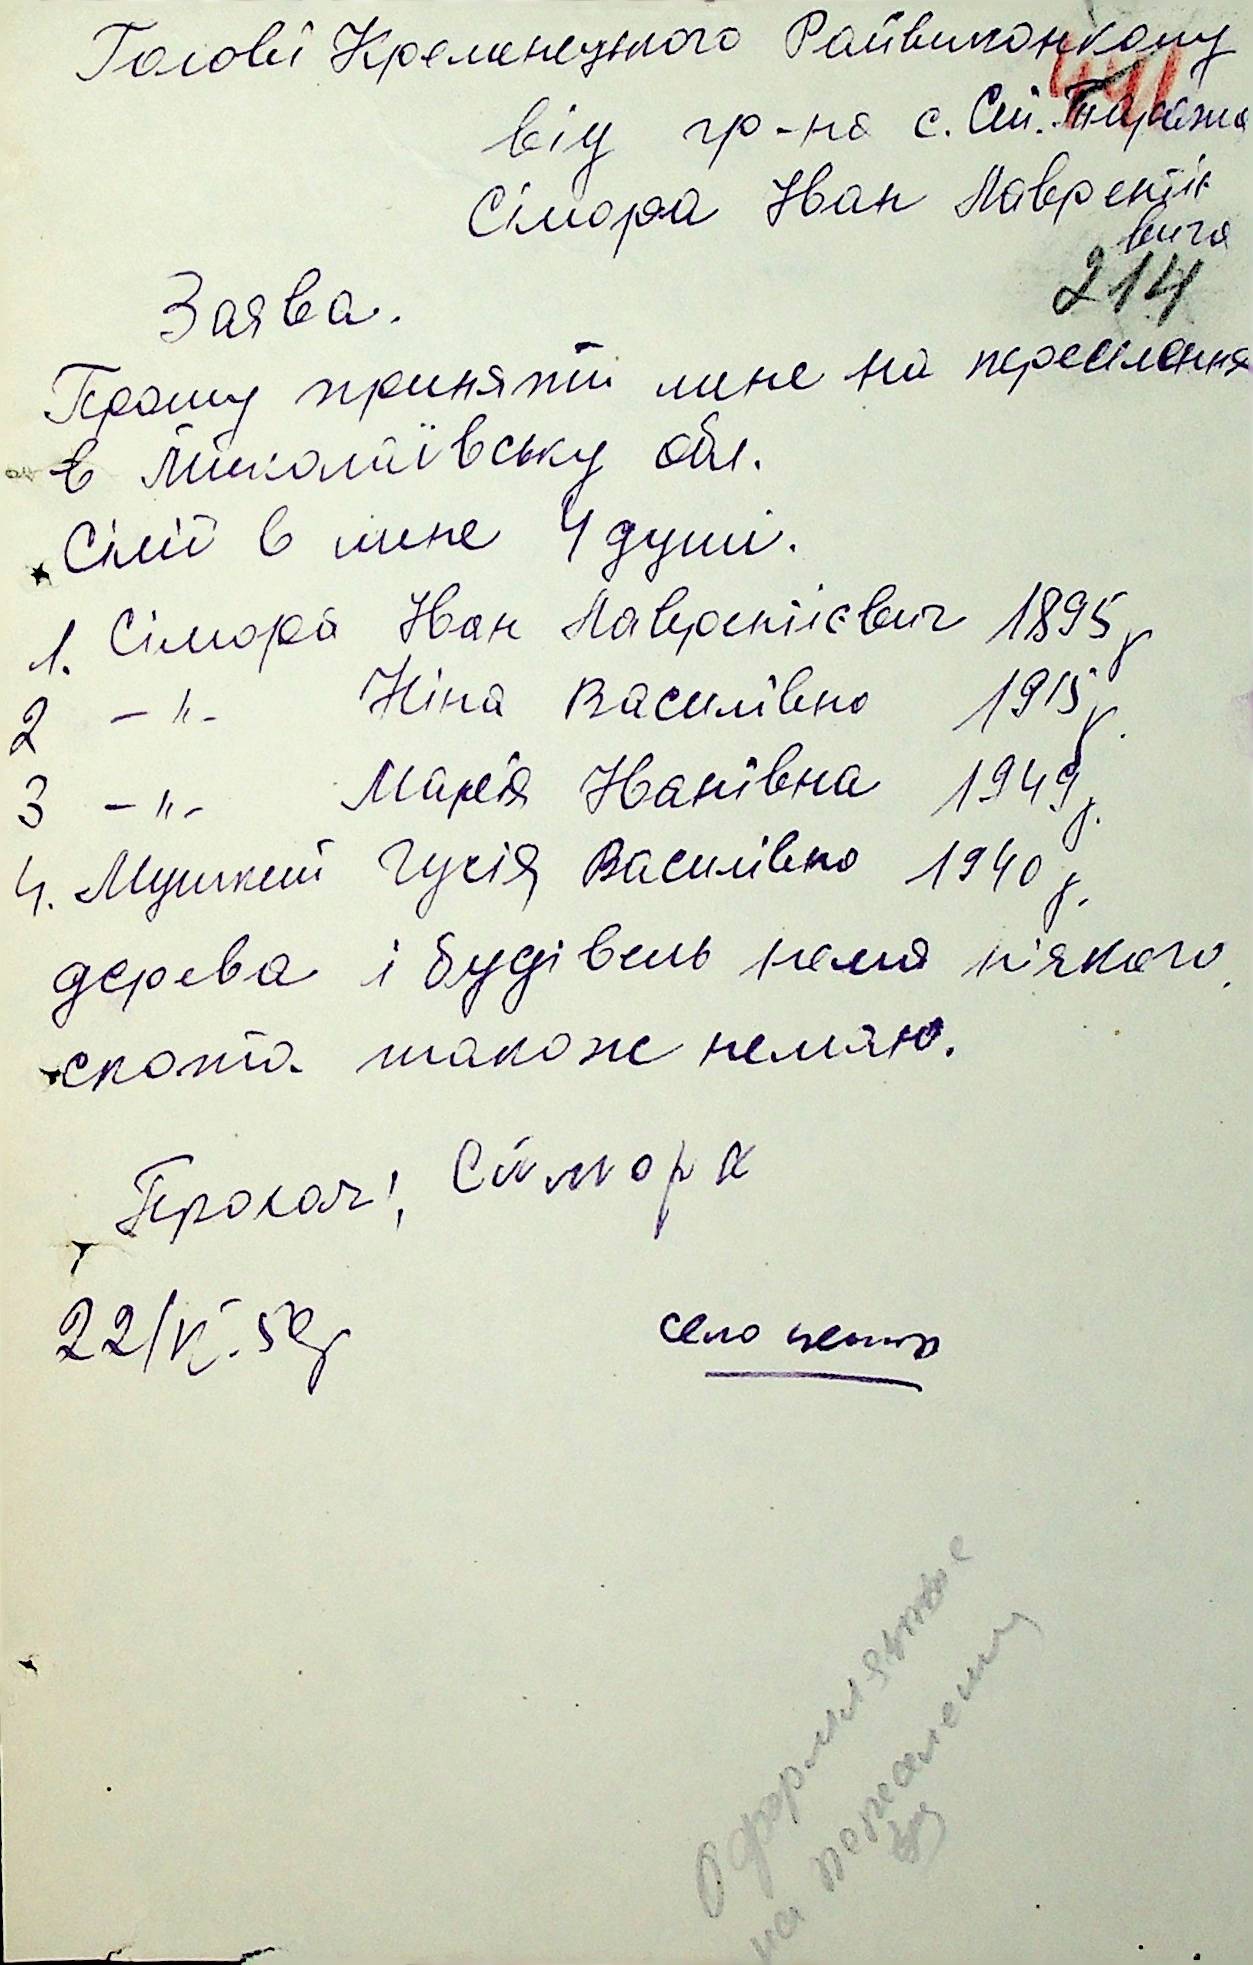 Голові Кременецького Райвиконкому
від гр-на с. Ст. Таража
Сімора Іван Лаврентіє
вича
214
Заява.
Прошу принятти мене на переселення
в Миколаївську обл.
Сімї в мене 4 душі.
1. Сімора Іван Лаврентієвич 1895 р
2 -"- Ніна Василівна 1915 р.
3 -"- Марія Іванівна 1949 р.
4. Василівна 1940 р.
дерева і будівель немя ніякого.
скота також немаю.
Прохач! Сімора
22/ 50р
село центр
Оформлять
на переселен